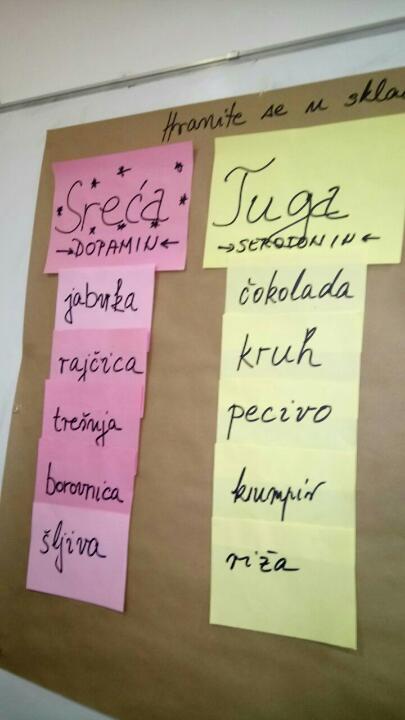 Hranite se u
Sreća
→DOPAMIN←
jabuka
rajčica
trešnja
borovnica
šljiva
Tuga
→SEROTONIN←
čokolada
kruh
pecivo
krumpir
riža